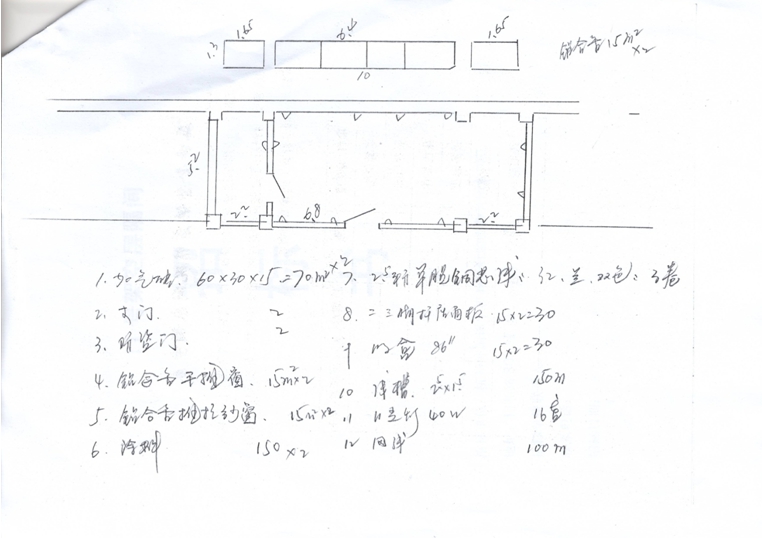 1.65
6.4
1.65
1.3
10
铝合金 15m²
×2
5.2
2.2
6.8
2.2
1. 加气砖. 60×30×15=70m²×2
2. 木门. 2
3. 防盗门. 2
4. 铝合金平推窗. 15m²×2
5. 铝合金推拉纱窗. 15m²×2
6. 涂料 150×2
7. 2.5平方单股铜芯线: 红、兰、双色: 3卷
8. 二三插开关面板 15×2=30
9 暗盒 86" 15×2=30
10 线槽. 25×15 150m
11 日光灯 40W 16套
12 网线 100m